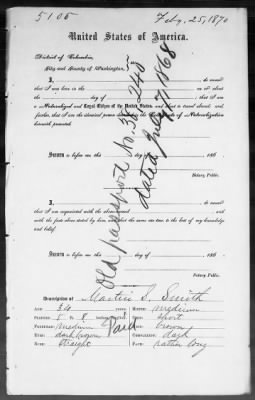 5105
Feby. 25, 1870
United States of America.
District of Columbia,
City and County of Washington,
I, do swear
that I was born in the on or about
the day of
that I am
a Naturalized and Loyal Citizen of the United States, and about to travel abroad, and
further, that I am the identical person described in the Certificate of Naturalization
herewith presented.
Old passport No. 38,240
dated July 17, 1868
Sworn to before me this day of 186
Notary Public.
I, do swear
that I am acquainted with the above-named
and with the facts above stated by him and that the same are true to the best of my knowledge
and belief.
Sworn to before me this day of 186
Notary Public.
Description of Martin Smith
Age: 34 years. Mouth: medium
Stature: 5 8 Chin: short
Forehead: medium Hair: brown
Eyes: dark brown Complexion: dark
Nose: straight Face: rather long
Paid